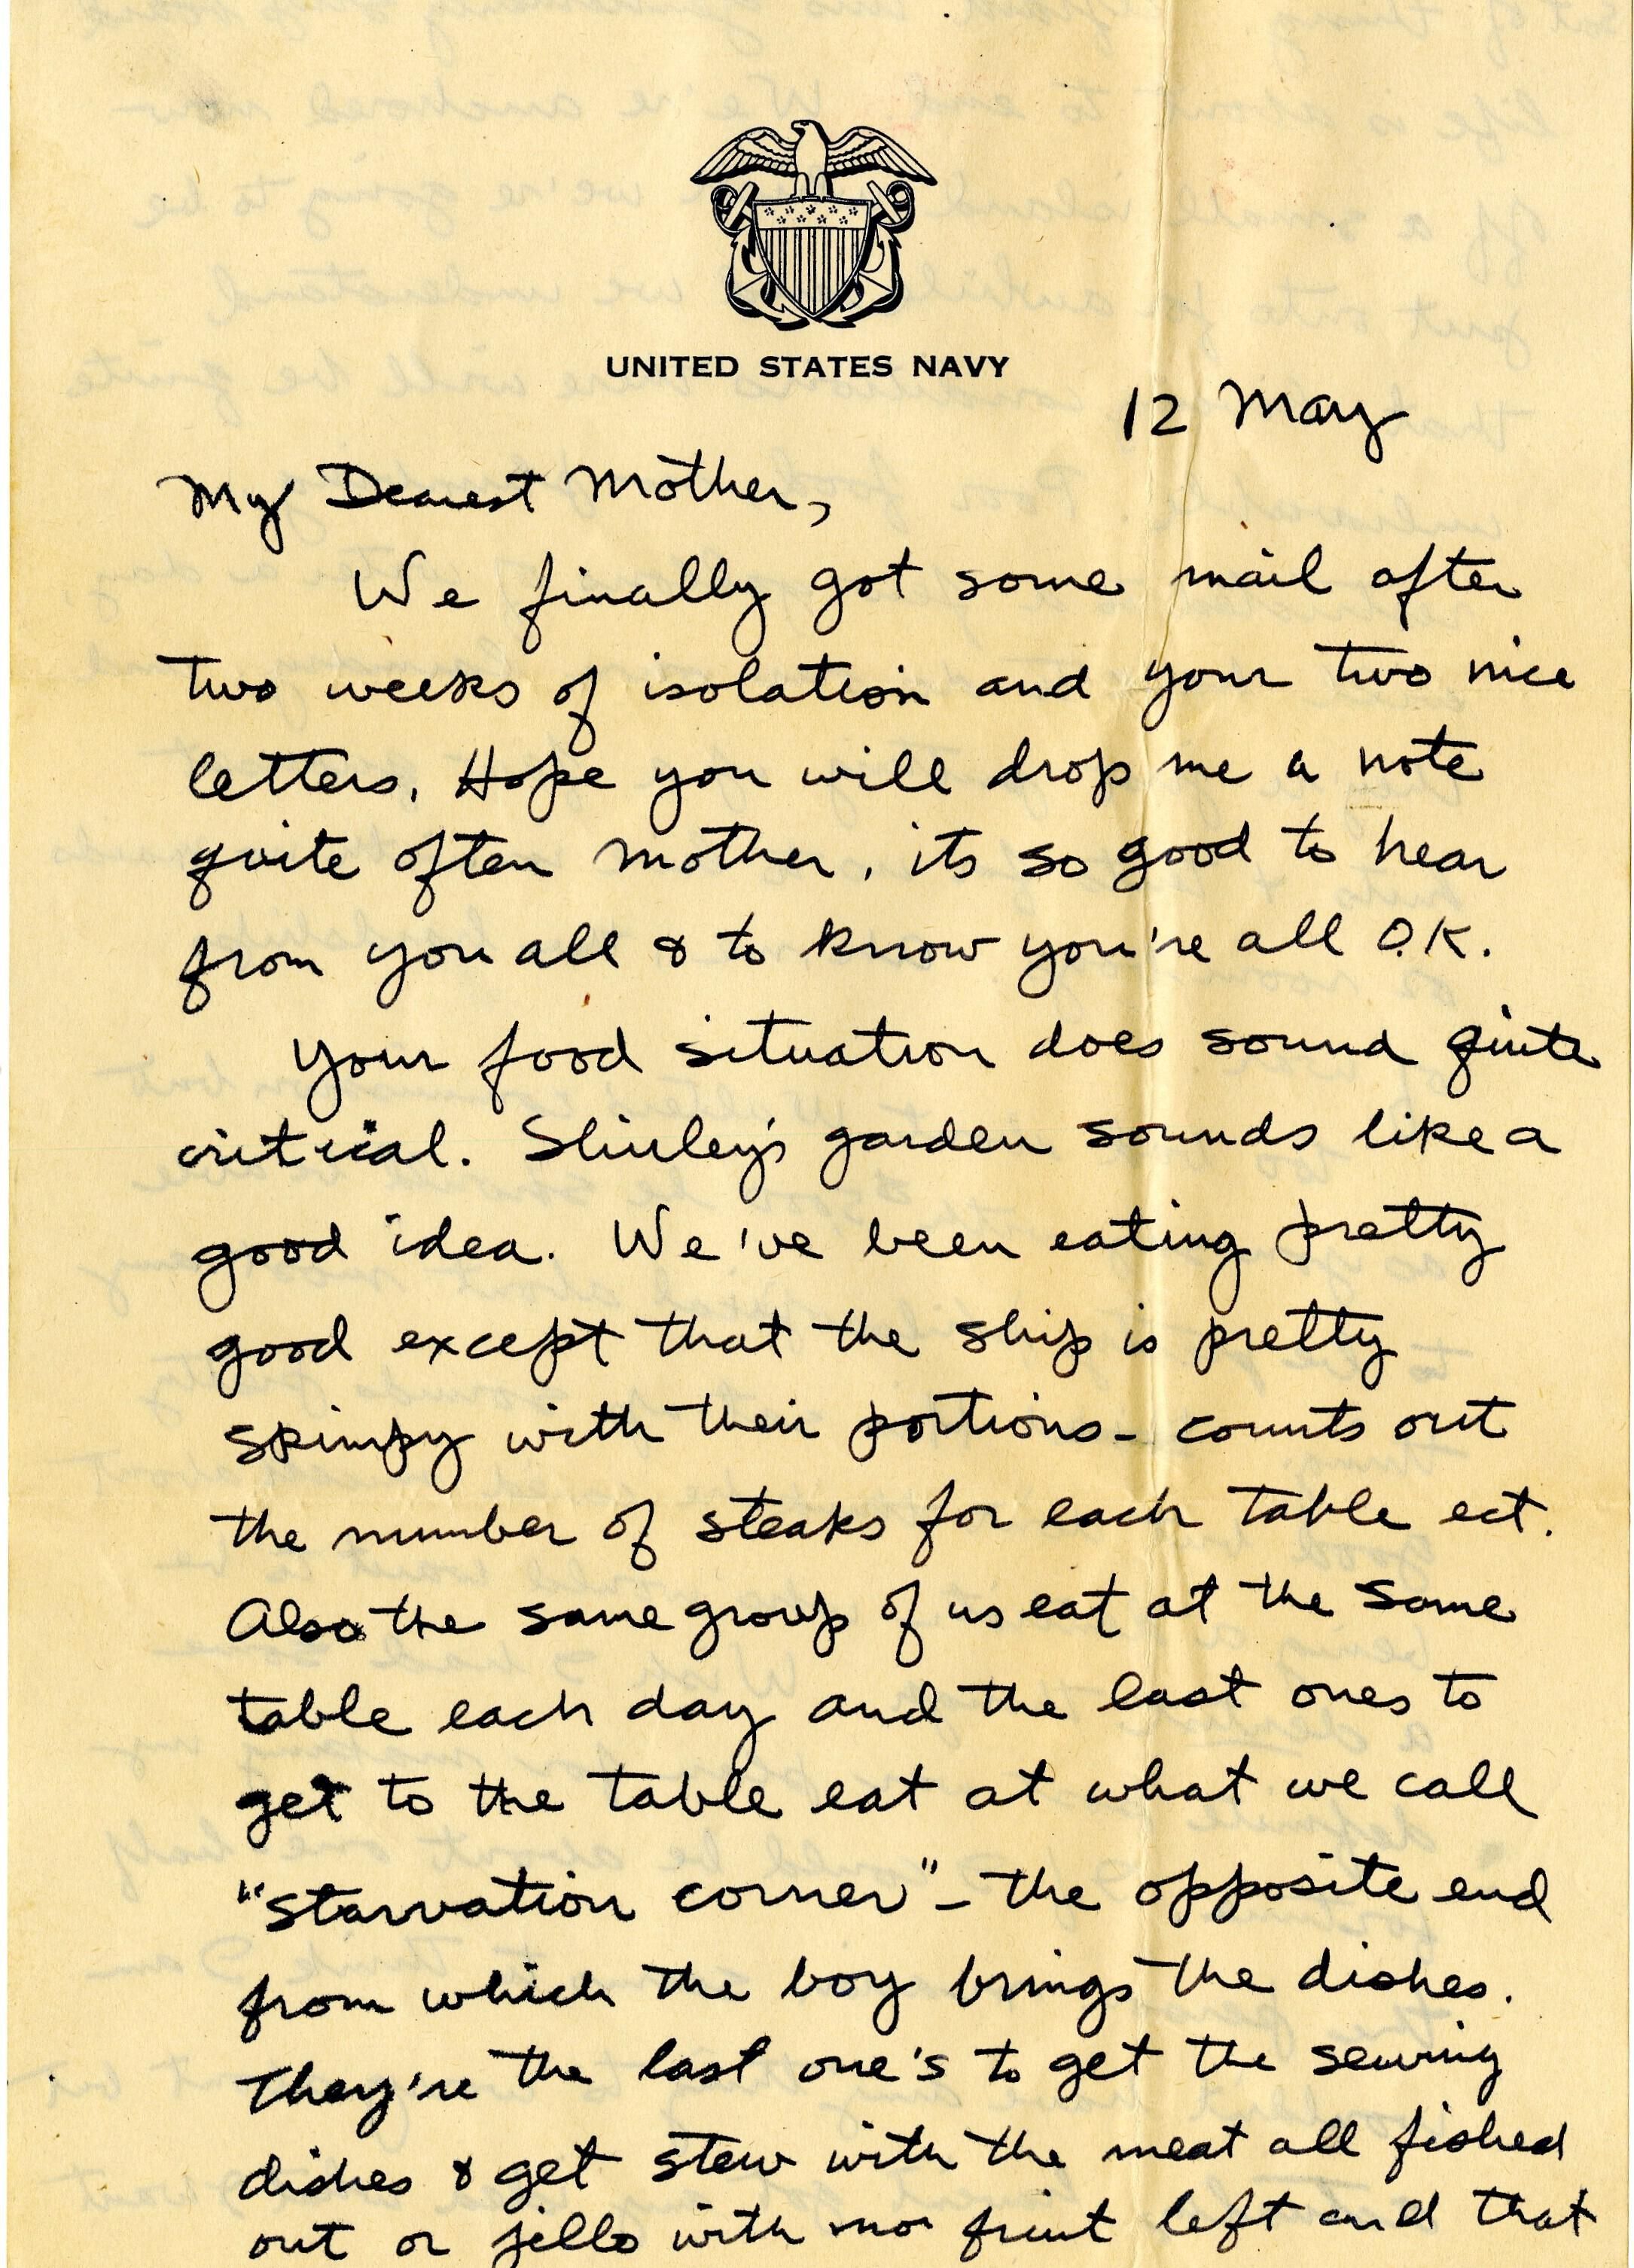 UNITED STATES NAVY
12 May
My Dearest Mother,
We finally got some mail after
two weeks of isolation and your two nice
letters. Hope you will drop me a note
quite often mother, its so good to hear
from you all & to know you're all O.K.
Your food situation does sound quite
critical. Shirley's garden sounds like a
good idea. We've been eating pretty
good except that the ship is pretty
skimpy with their portions - counts out
the number of steaks for each table ect.
Also the same group of us eat at the same
table each day and the last ones to
get to the table eat at what we call
"starvation corner" - the opposite end
from which the boy brings the dishes.
They're the last one's to get the serving
dishes & get stew with the meat all fished
out or jello with no fruit left and that